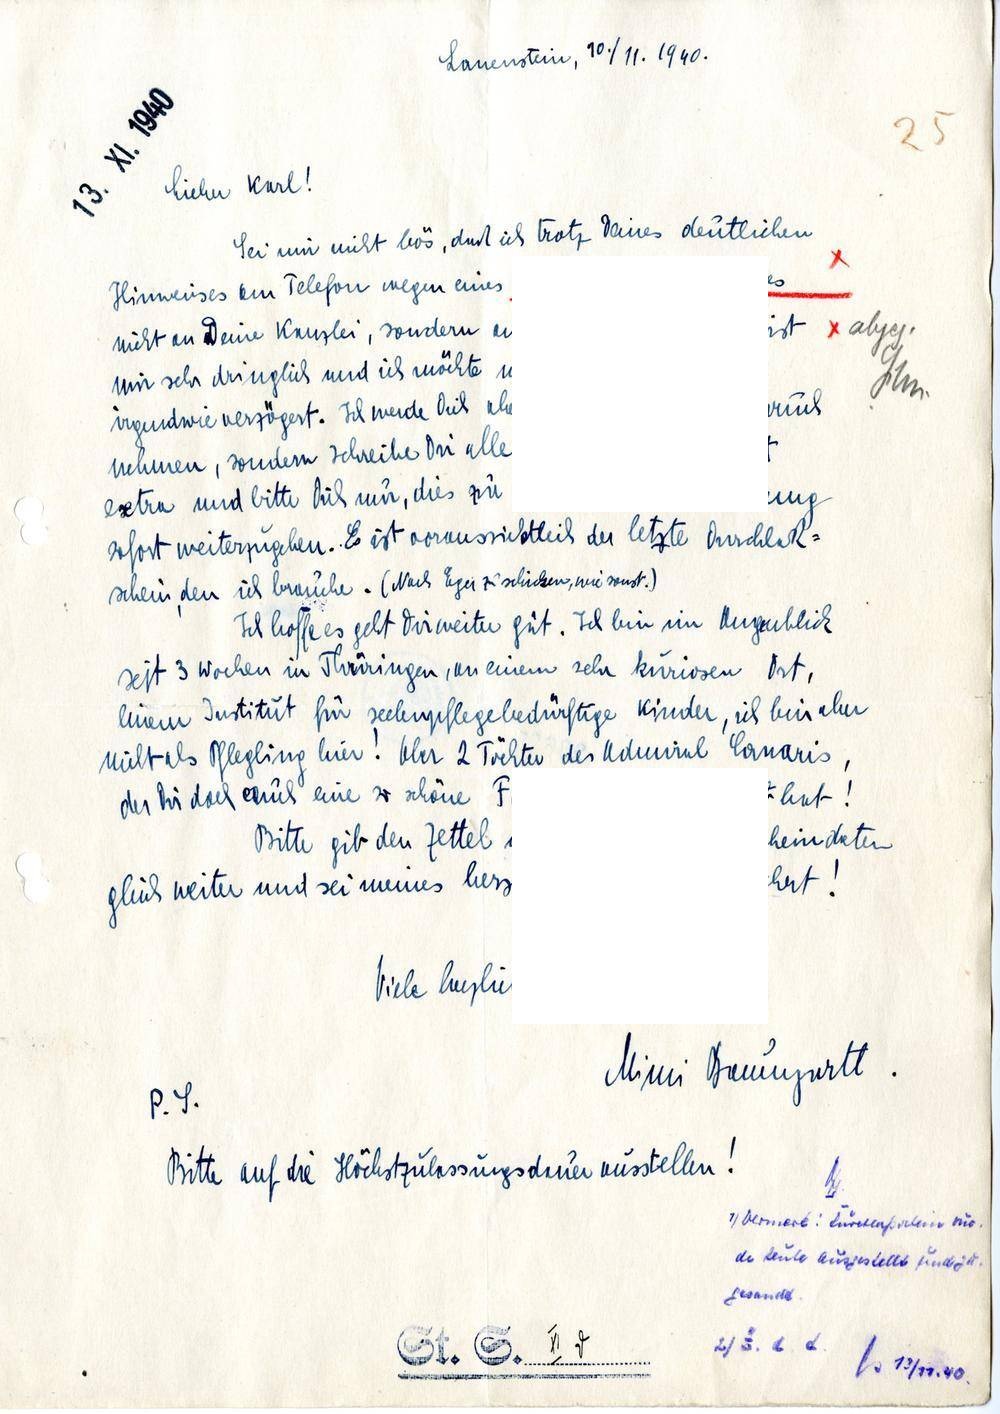 Lauenstein, 10./11. 1940.
13. XI. 1940
25
Lieber Karl!
Sei mir nicht bös, daß ich trotz Deines deutlichen
Hinweises am Telefon wegen eines es
nicht an Deine Kanzlei, sondern an ist x abgeg.
mir sehr dringlich und ich möchte
irgendwie verzögert. Ich werde Dich
nehmen, sondern schreibe Dir alle t
extra und bitte Dich nur, dies zu ung
sofort weiterzugeben. Es ist voraussichtlich der letzte Durchlaß=
schein, den ich brauche. (Nach Eger zu schicken, wie sonst.)
Ich hoffe es geht Dir weiter gut. Ich bin im Augenblick
seit 3 Wochen in Thüringen, an einem sehr kuriosen Ort,
einem Institut für seelenpflegebedürftige Kinder, ich bin aber
nicht als Pflegling hier! Aber 2 Töchter des Admiral Canaris,
der Dir doch auch eine so schöne F hat!
Bitte gib den Zettel heindaten
gleich weiter und sei meines herz chert!
Viele herzli
Mimi Baumgartl.
P.S.
Bitte auf die Höchstzulassungsdauer ausstellen!
1/ Vermerk: Durchlaßschein wur-
de heute ausgestellt und zu-
gesandt.
2/ Z. d. A.
13/11.40.
St. S. XI d